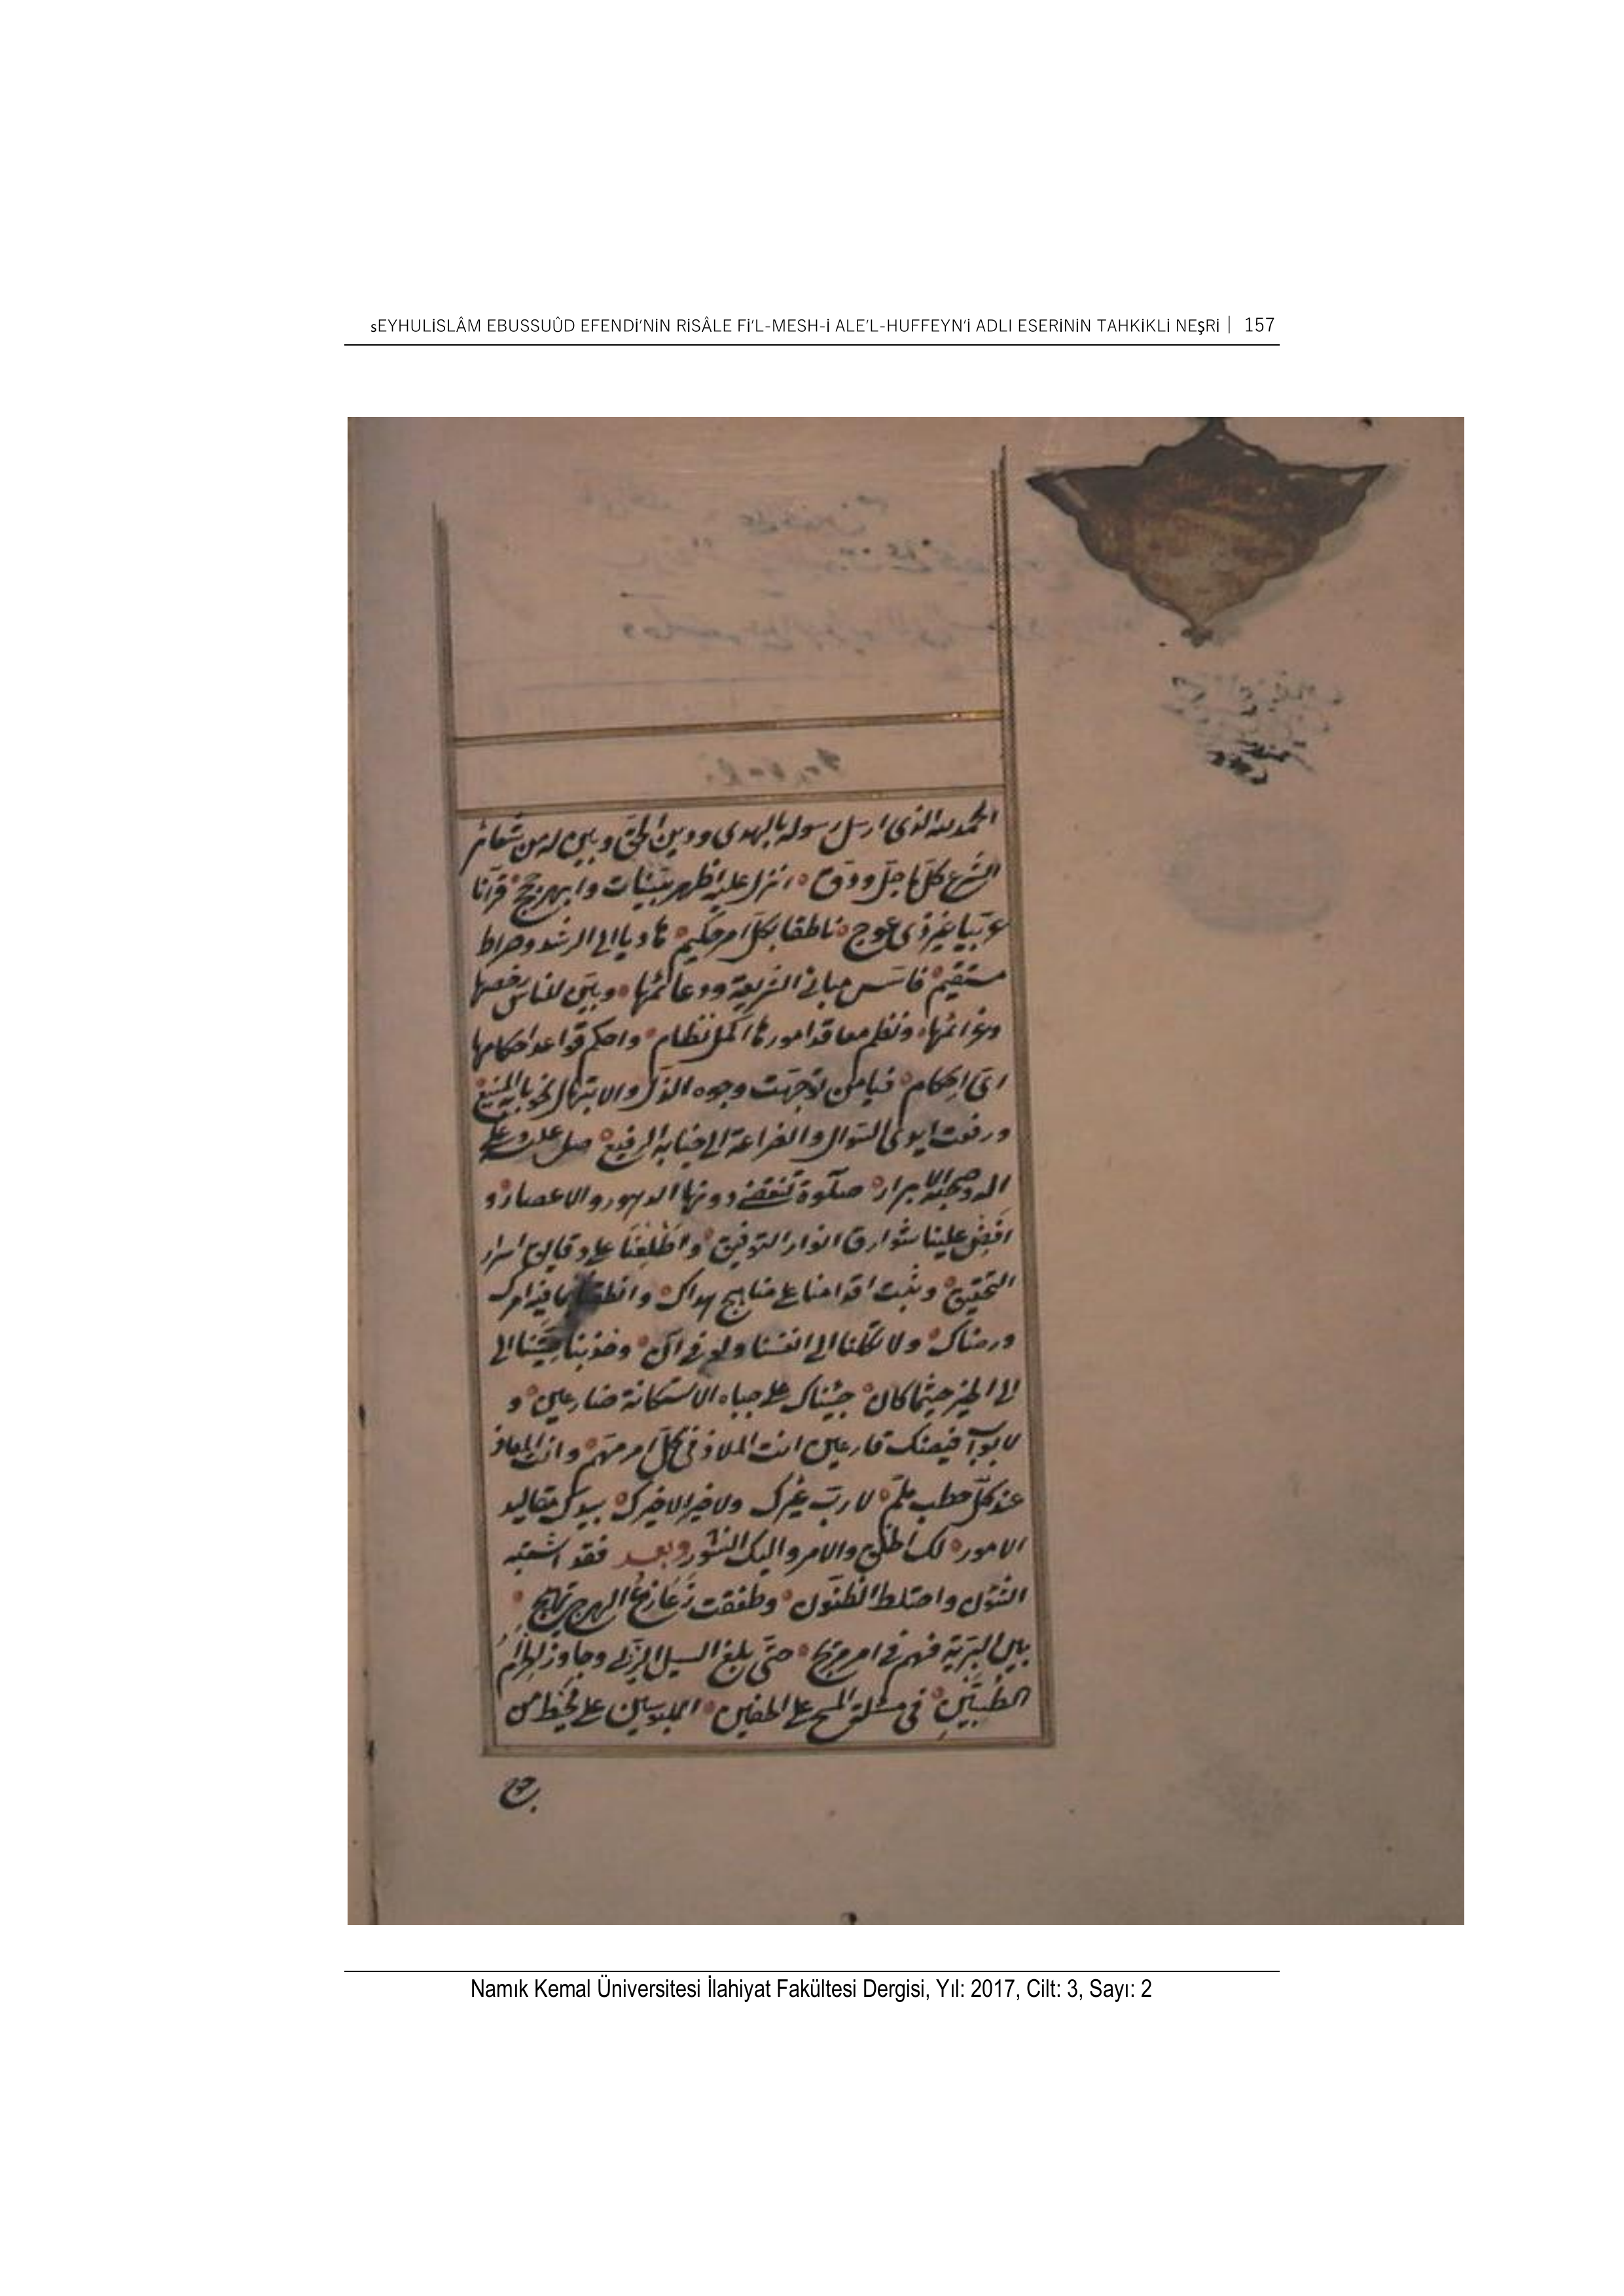 sEYHULİSLÂM EBUSSUÛD EFENDİ'NİN RİSÂLE Fİ'L-MESH-İ ALE'L-HUFFEYN'İ ADLI ESERİNİN TAHKİKLİ NEŞRİ | 157
الحمد لله الذى ارسل رسوله بالهدى ودين الحق وبين له من شعائر
الشرع كل ما جل ودق انزل عليه اظهر بينات وابهر حجج قرآنا
عربيا غير ذى عوج ناطقا بكل امر حكيم هاديا الى الرشد وصراط
مستقيم فاسس مبانى الشريعة ودعائمها وبين للناس رخصها
وعزائمها ونظم معاقد امورها اكمل نظام واحكم قواعد احكامها
اى احكام فيا من توجهت وجوه الذل والابتهال نحو بابه المنيع
ورفعت ايدى السؤال والضراعة الى جنابه الرفيع صل عليه وعلى
اله وصحبه الابرار صلوة تنقضى دونها الدهور والاعصار و
افض علينا شوارق انوار التوفيق واطلعنا على دقايق اسرار
التحقيق وثبت اقدامنا على مناهج هداك وانطقنا بما فيه امرك
ورضاك ولا تكلنا الى انفسنا ولو فى آن وخذ بنا الى
الى الخير حيثما كان جئناك على جباه الاستكانة ضارعين و
لابواب فيضك قارعين انت الملاذ فى كل امر مهم وانت المعاذ
عند كل خطب ملم لا رب غيرك ولا خير الا خيرك بيدك مقاليد
الامور لك الخلق والامر واليك النشور وبعد فقد اشتبه
الشؤن واختلط الظنون وطفقت زعازع الهرج تهيج
بين البرية فهم فى امر مريج حتى بلغ السيل الزبى وجاوز الحزام
الطبيين فى مسئلة المسح على الخفين الملبوسين على مخيط من
جوخ
Namık Kemal Üniversitesi İlahiyat Fakültesi Dergisi, Yıl: 2017, Cilt: 3, Sayı: 2